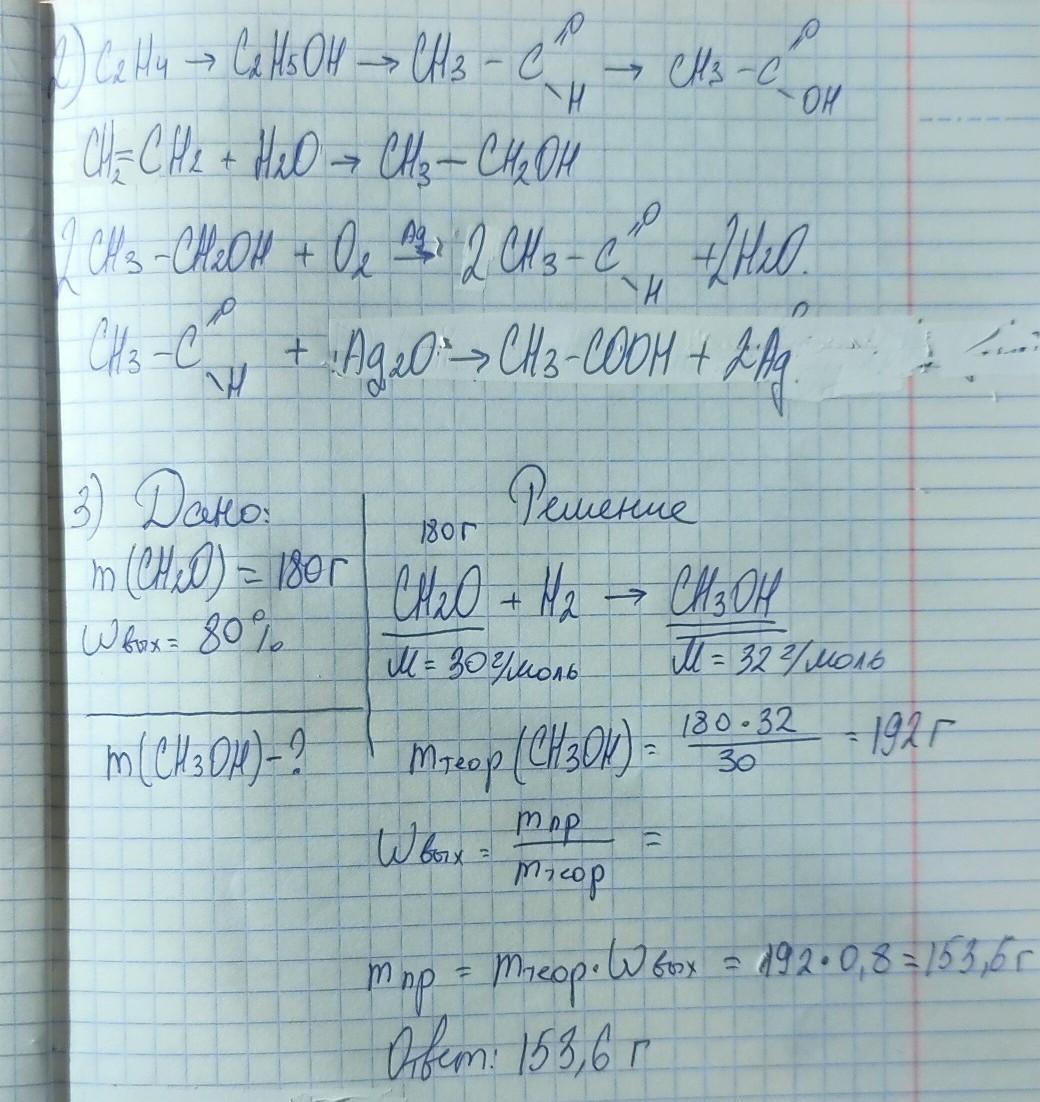 2) C2H4 → C2H5OH → CH3 – C =O – H → CH3 – C =O – OH
CH2=CH2 + H2O → CH3 – CH2OH
2CH3 – CH2OH + O2 Ag→ 2CH3 – C =O – H + 2H2O.
CH3 – C =O – H + Ag2O → CH3 – COOH + 2Ag
3) Дано:
m(CH2O) = 180г
Wвых = 80%
m(CH3OH) – ?
Решение
180г
CH2O + H2 → CH3OH
M = 30 г/моль M = 32 г/моль
mтеор(CH3OH) = 180·32 / 30 = 192 г
Wвых = mпр / mтеор =
mпр = mтеор·Wвых = 192·0,8 = 153,6 г
Ответ: 153,6 г